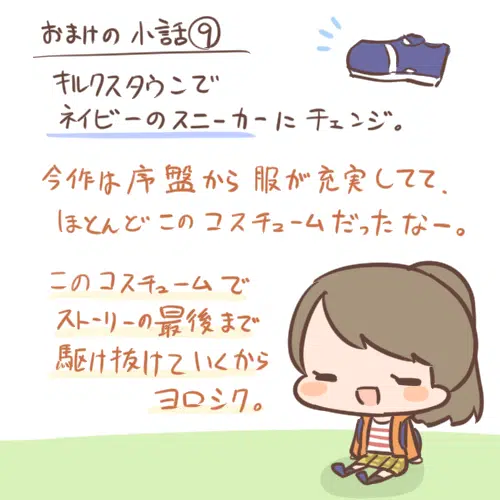 おまけの小話⑨
キルクスタウンで
ネイビーのスニーカーにチェンジ。
今作は序盤から服が充実してて、
ほとんどこのコスチュームだったなー。
このコスチュームで
ストーリーの最後まで
駆け抜けていくから
ヨロシク。